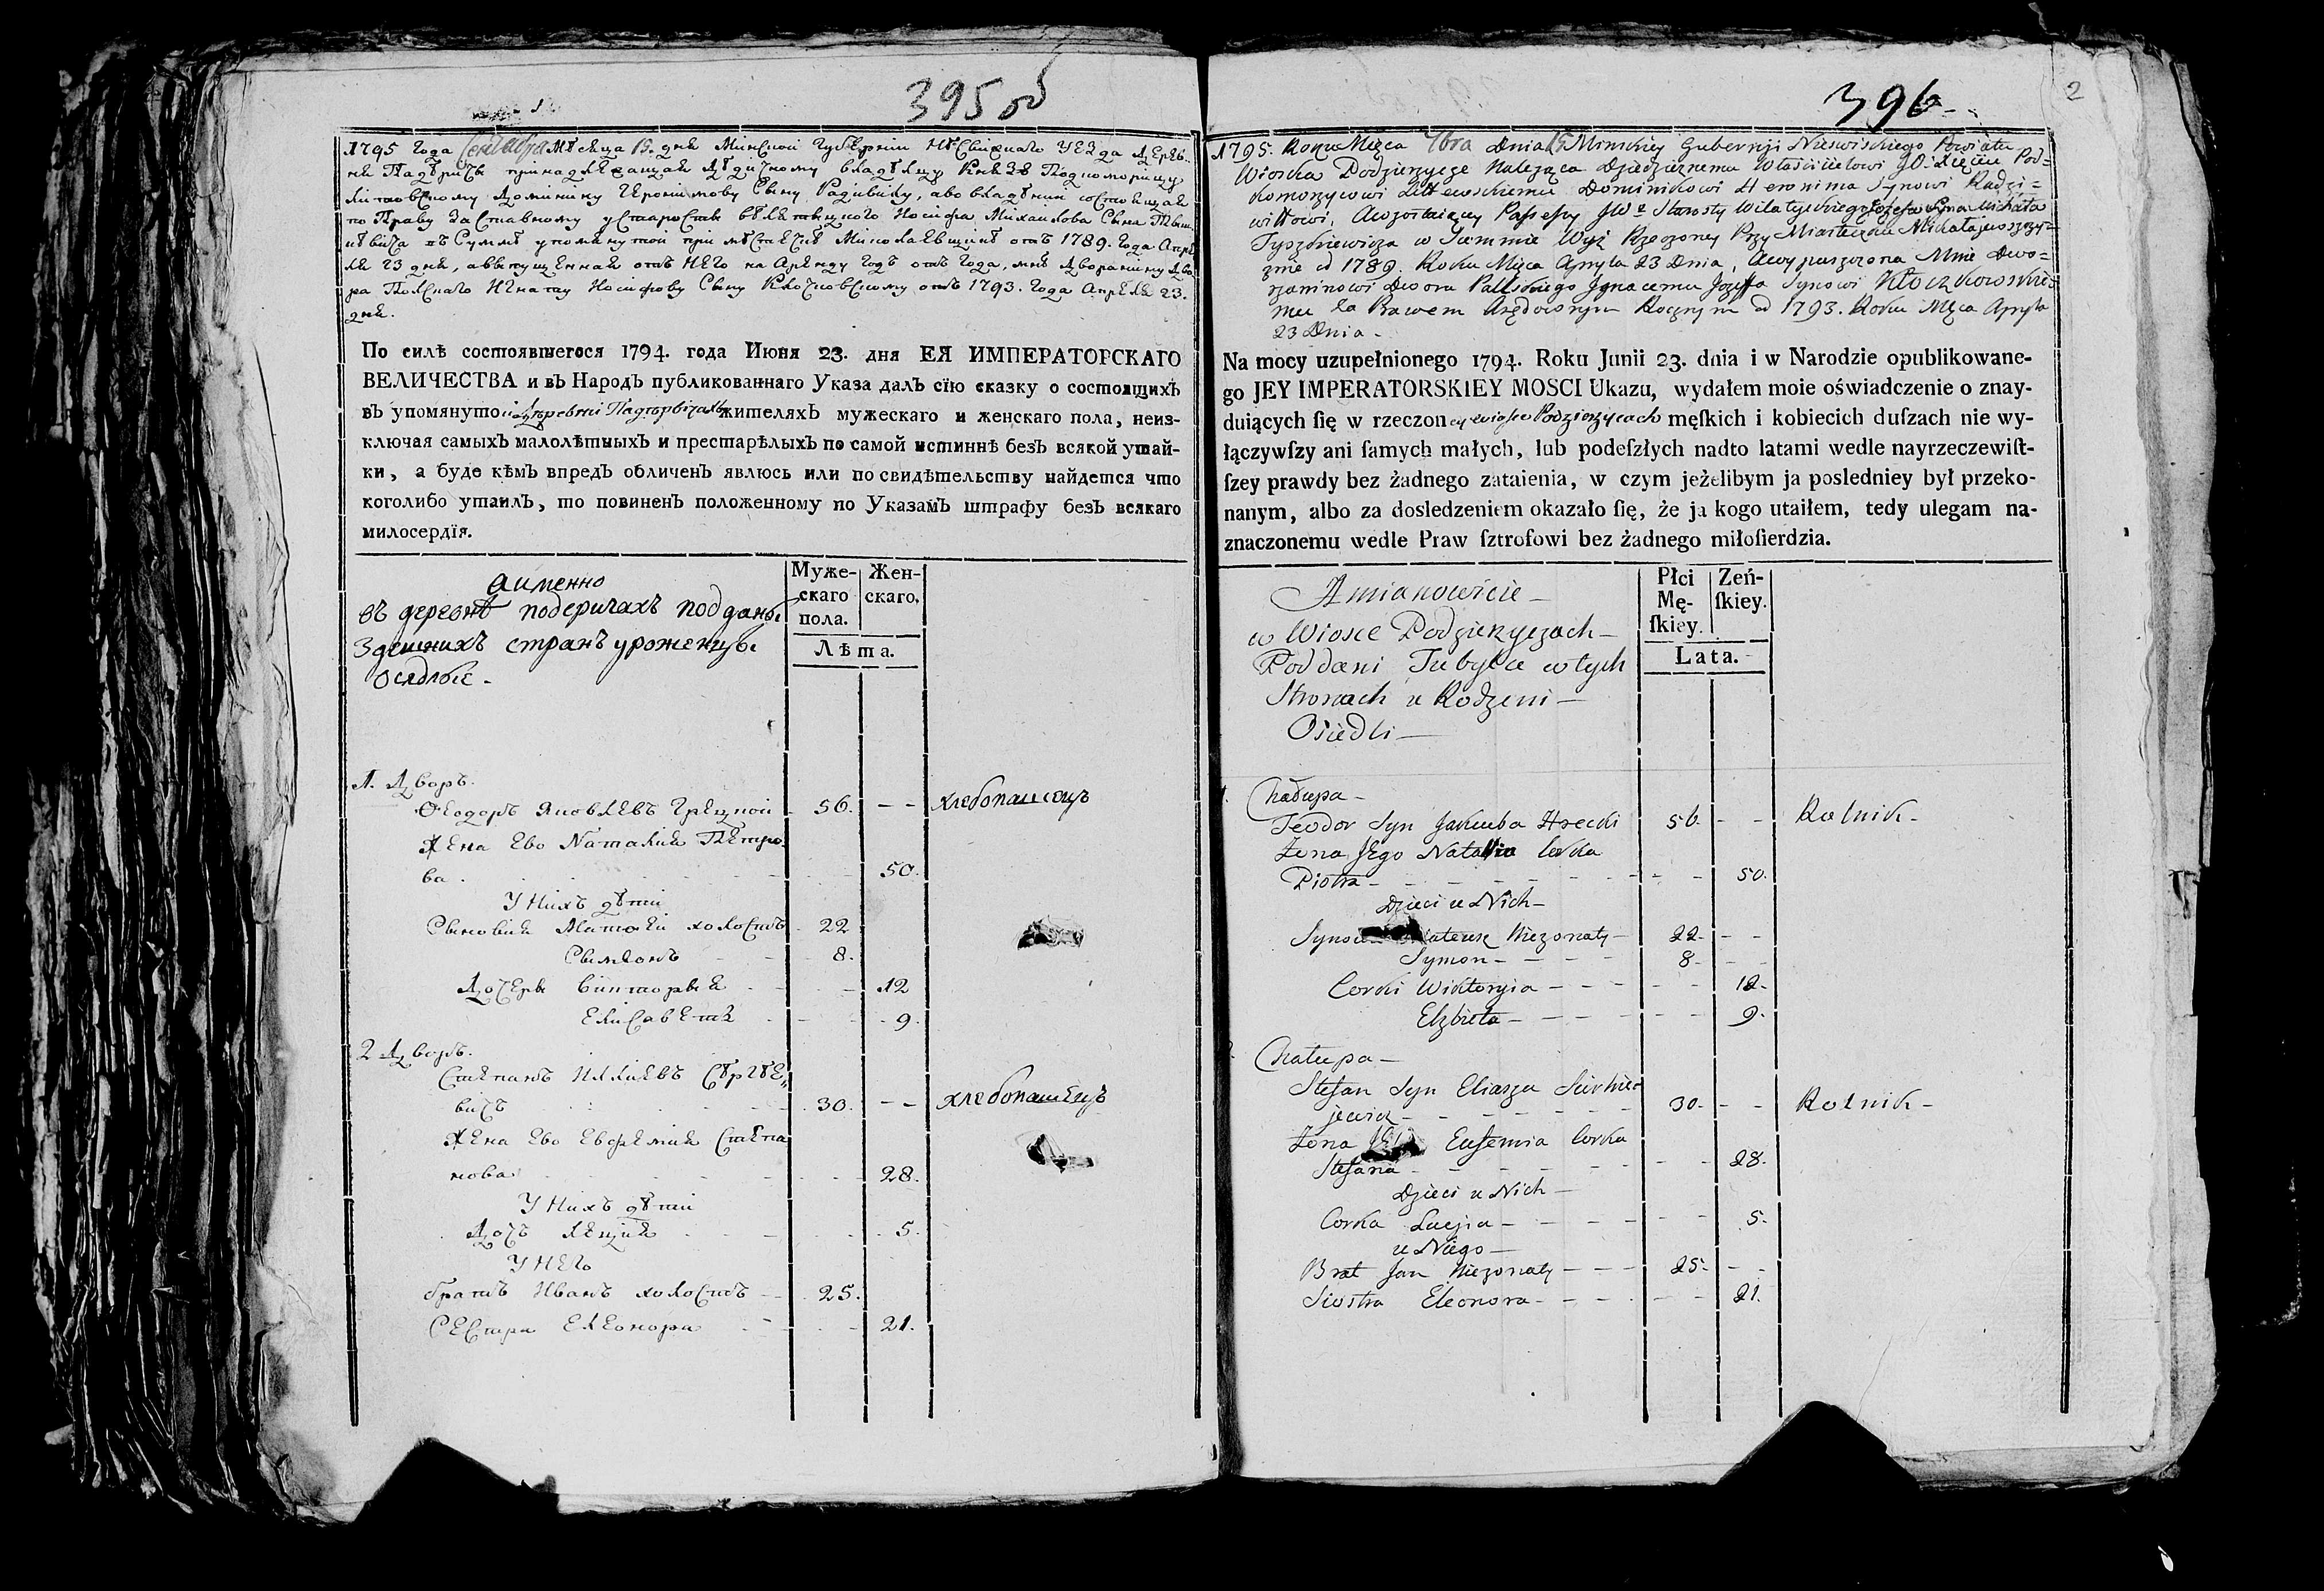 395 об
1795 Года Сентября Мѣсяца 15. дня Минской Губерніи Несвижскаго Уезда Дерев-
ня Падѣричи принадлежащая Дѣдичному владѣлцу Князю Подкоморищу
Литовскому Доминику Иеронимову Сыну Радивилу, аво владении состоящая
по Праву Заставному у Старости Иосифа Михаилова Сына Тыш-
кѣвича въ Суммѣ упомянутой при мѣстечкѣ Миколаевщинѣ отъ 1789. Года Апре-
ля 23 дня, авыпущенная отъ Него на Аренду годъ отъ года, мнѣ Дворанину Дво-
ра Полскаго Игнатию Иосифову Сыну Клочковскому отъ 1793. Года Апреля 23.
дня.
По силѣ состоявшегося 1794. года Июня 23. дня ЕЯ ИМПЕРАТОРСКАГО
ВЕЛИЧЕСТВА и въ Народъ публикованнаго Указа далъ сїю сказку о состоящихъ
въ упомянутой деревни Падѣричахъ жителяхъ мужескаго и женскаго пола, неиз-
ключая самыхъ малолѣтныхъ и престарѣлыхъ по самой истиннѣ безъ всякой утай-
ки, а буде кѣмъ впредъ обличенъ явлюсь или по свидѣтельству найдется что
коголибо утаилъ, то повиненъ положенному по Указамъ штрафу безъ всякаго
милосердїя.
аименно
въ деревнѣ подеричахъ подданые
здешнихъ странъ уроженцы
оседлые -
Муже-
скаго
пола.
Жен-
скаго.
Лѣта.
1. Дворъ.
Ѳеодоръ Яковлевъ Грецкой - 56. - - хлебопашецъ
Жена Ево Наталия Петро
ва . 50.
У Нихъ дѣти
Сыновия Матвѣй холостъ - 22
Сымонъ - - 8.
Дочери Викторыя - - 12
Елисаветя - - 9.
2 Дворъ.
Степанъ Илиевъ Сѣргѣе-
вичъ 30. - - хлебопашецъ
Жена Ево Евфемия Степа
нова 28.
У Нихъ дѣти
Дочъ Люция 5.
У Него
братъ Иванъ холостъ - 25.
Сестра Елеонора - - 21.
396
2
1795. Roku Mięca 7bra Dnia 15 Minskiey Gubernji Nieswiskiego Powiatu
Wioska Podzierzycze Naleząca Dziedzicznemu Właścicielowi JO. Xięciu Pod=
komorzycowi Littewskiemu Dominikowi Heronima Synowi Radzi=
wiłłowi, Awzostaiącey Possesyi JWo Starosty Wilatyckiego Jozefa Syna Michała
Tyszkiewicza w Summie Wyż Rzeczoney Przy Miasteczku Mikołajewszczyz=
znie od 1789. Roku Mięca Apryla 23 Dnia, Awypuszczona Mnie Dwo=
rzaninowi Dwora Polskiego Jgnacemu Jozeffa Synowi Kłoczkowskie=
mu Za Prawem Arędownym Rocznym od 1793. Roku Mięca Apryla
23 Dnia -
Na mocy uzupełnionego 1794. Roku Junii 23. dnia i w Narodzie opublikowane-
go JEY IMPERATORSKIEY MOSCI Ukazu, wydałem moie oświadczenie o znay-
duiących ſię w rzeczoney wiosce Podzierzycach męſkich i kobiecich duſzach nie wy-
łączywſzy ani ſamych małych, lub podeſzłych nadto latami wedle nayrzeczewiſt-
ſzey prawdy bez żadnego zataienia, w czym jeżelibym ja posledniey był przeko-
nanym, albo za dosledzeniem okazało ſię, że ja kogo utaiłem, tedy ulegam na-
znaczonemu wedle Praw ſztrofowi bez żadnego miłoſierdzia.
Amianowicie -
w Wiosce Podzierzyczach -
Poddani Tubylce w tych
Stronach u Rodzeni -
Osiedli -
Płci
Mę-
ſkiey.
Zeń-
ſkiey.
Lata.
Chałupa -
Teodor Syn Jakuba Hrecki 56. - - Rolnik -
Zona Jego Natalia Corka
Piotra - - - 50.
Dzieci u Nich -
Synowie Mateusz Niezonaty - 22. - -
Symon - - - 8. - -
Corki Wiktoryia - - - 12.
Elzbieta - - - 9.
Chałupa -
Stefan Syn Eliasza Sierhie-
jewicz - - - 30. - - Rolnik -
Zona Jego Eufemia Corka
Stefana - - - 28.
Dzieci u Nich -
Corka Lucyia - - - 5.
u Niego -
Brat Jan Niezonaty - - - 25. - -
Siostra Eleonora - - - 21.